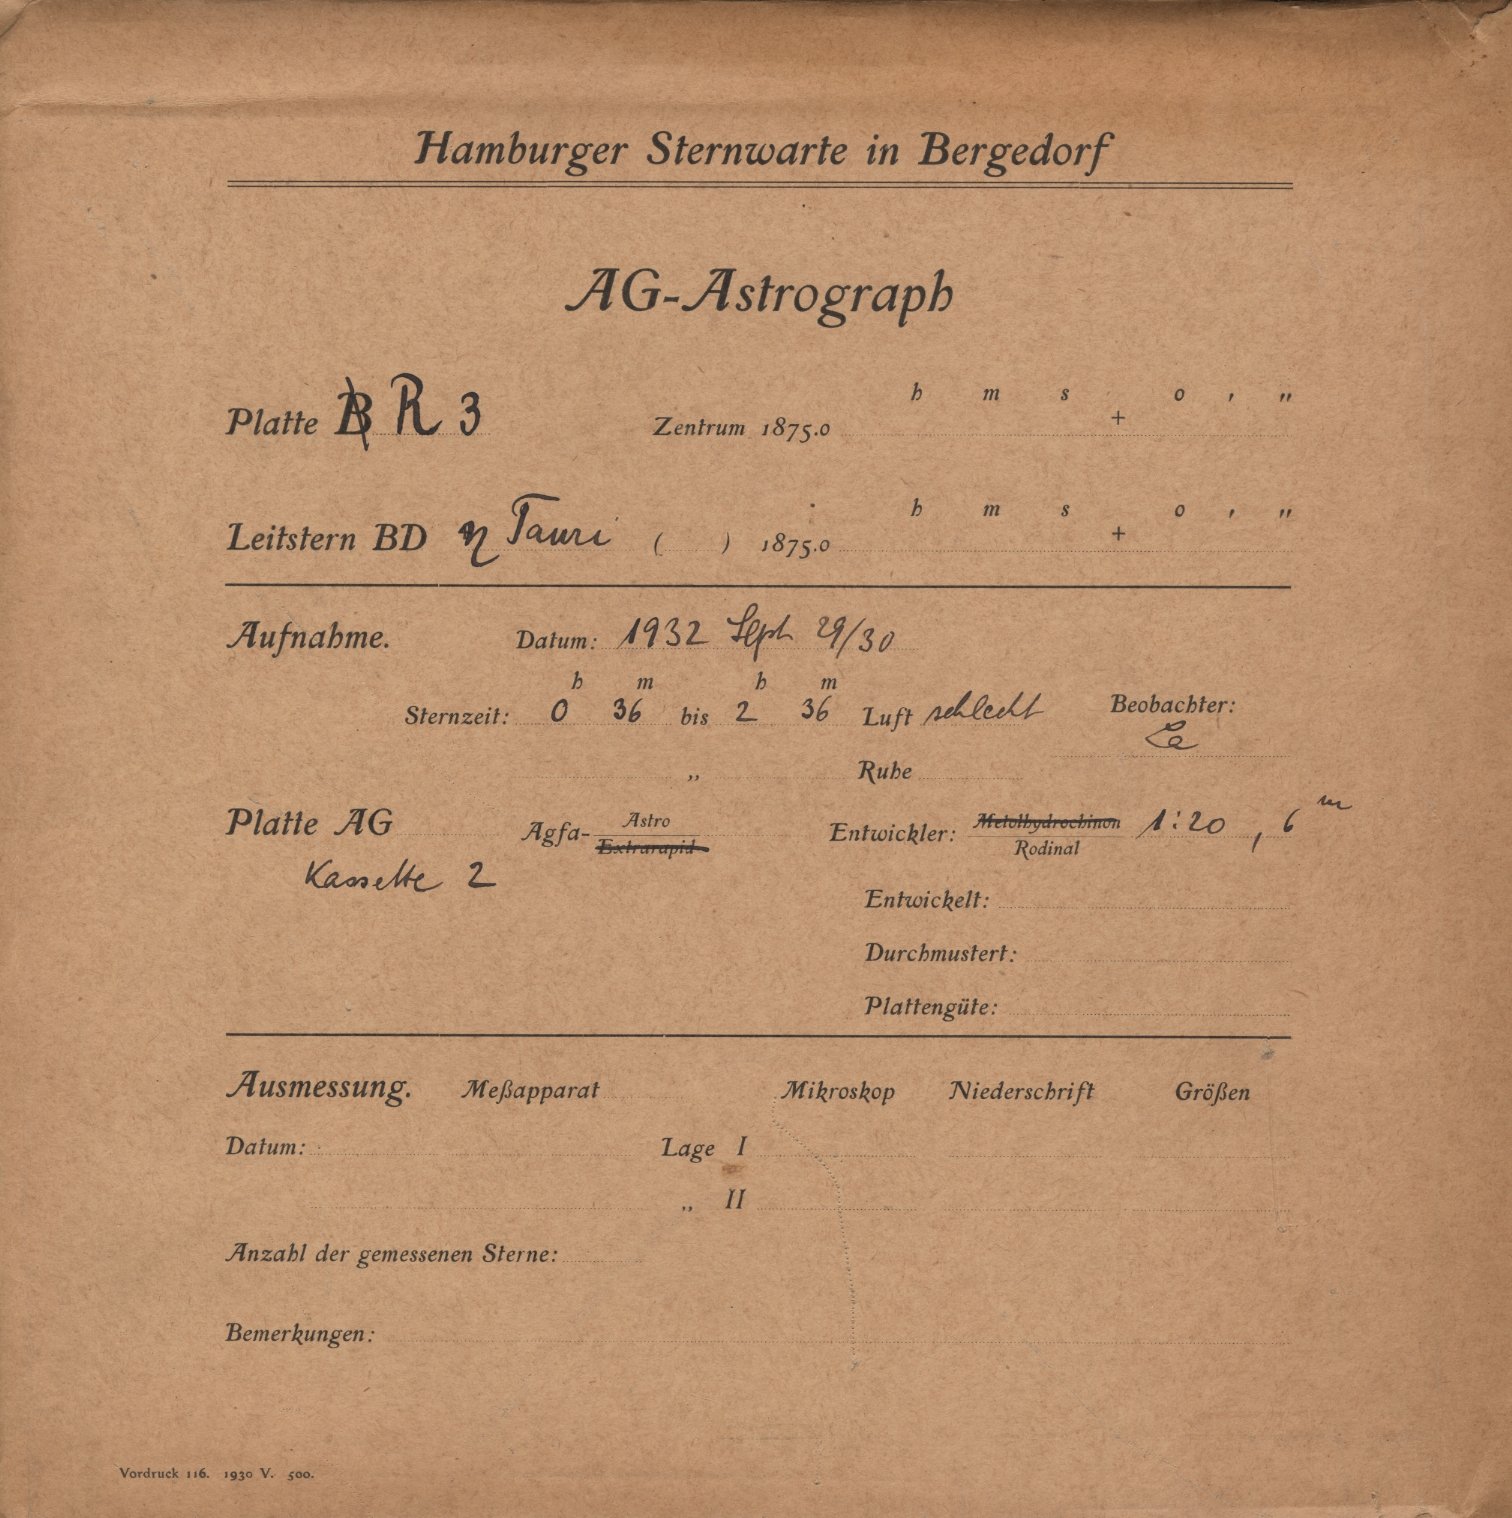 Hamburger Sternwarte in Bergedorf
AG-Astrograph
h m s o , „
Platte B R 3 Zentrum 1875.0 +
h m s o , „
Leitstern BD η Tauri ( ) 1875.0 +
Aufnahme. Datum: 1932 Sept 29/30
h m h m
Sternzeit: 0 36 bis 2 36 Luft schlecht Beobachter:
La
„ Ruhe
Platte AG Agfa- Astro Extrarapid Entwickler: Metolhydrochinon Rodinal 1:20, 6 m
Kassette 2
Entwickelt:
Durchmustert:
Plattengüte:
Ausmessung. Meßapparat Mikroskop Niederschrift Größen
Datum: Lage I
„ II
Anzahl der gemessenen Sterne:
Bemerkungen:
Vordruck 116. 1930 V. 500.